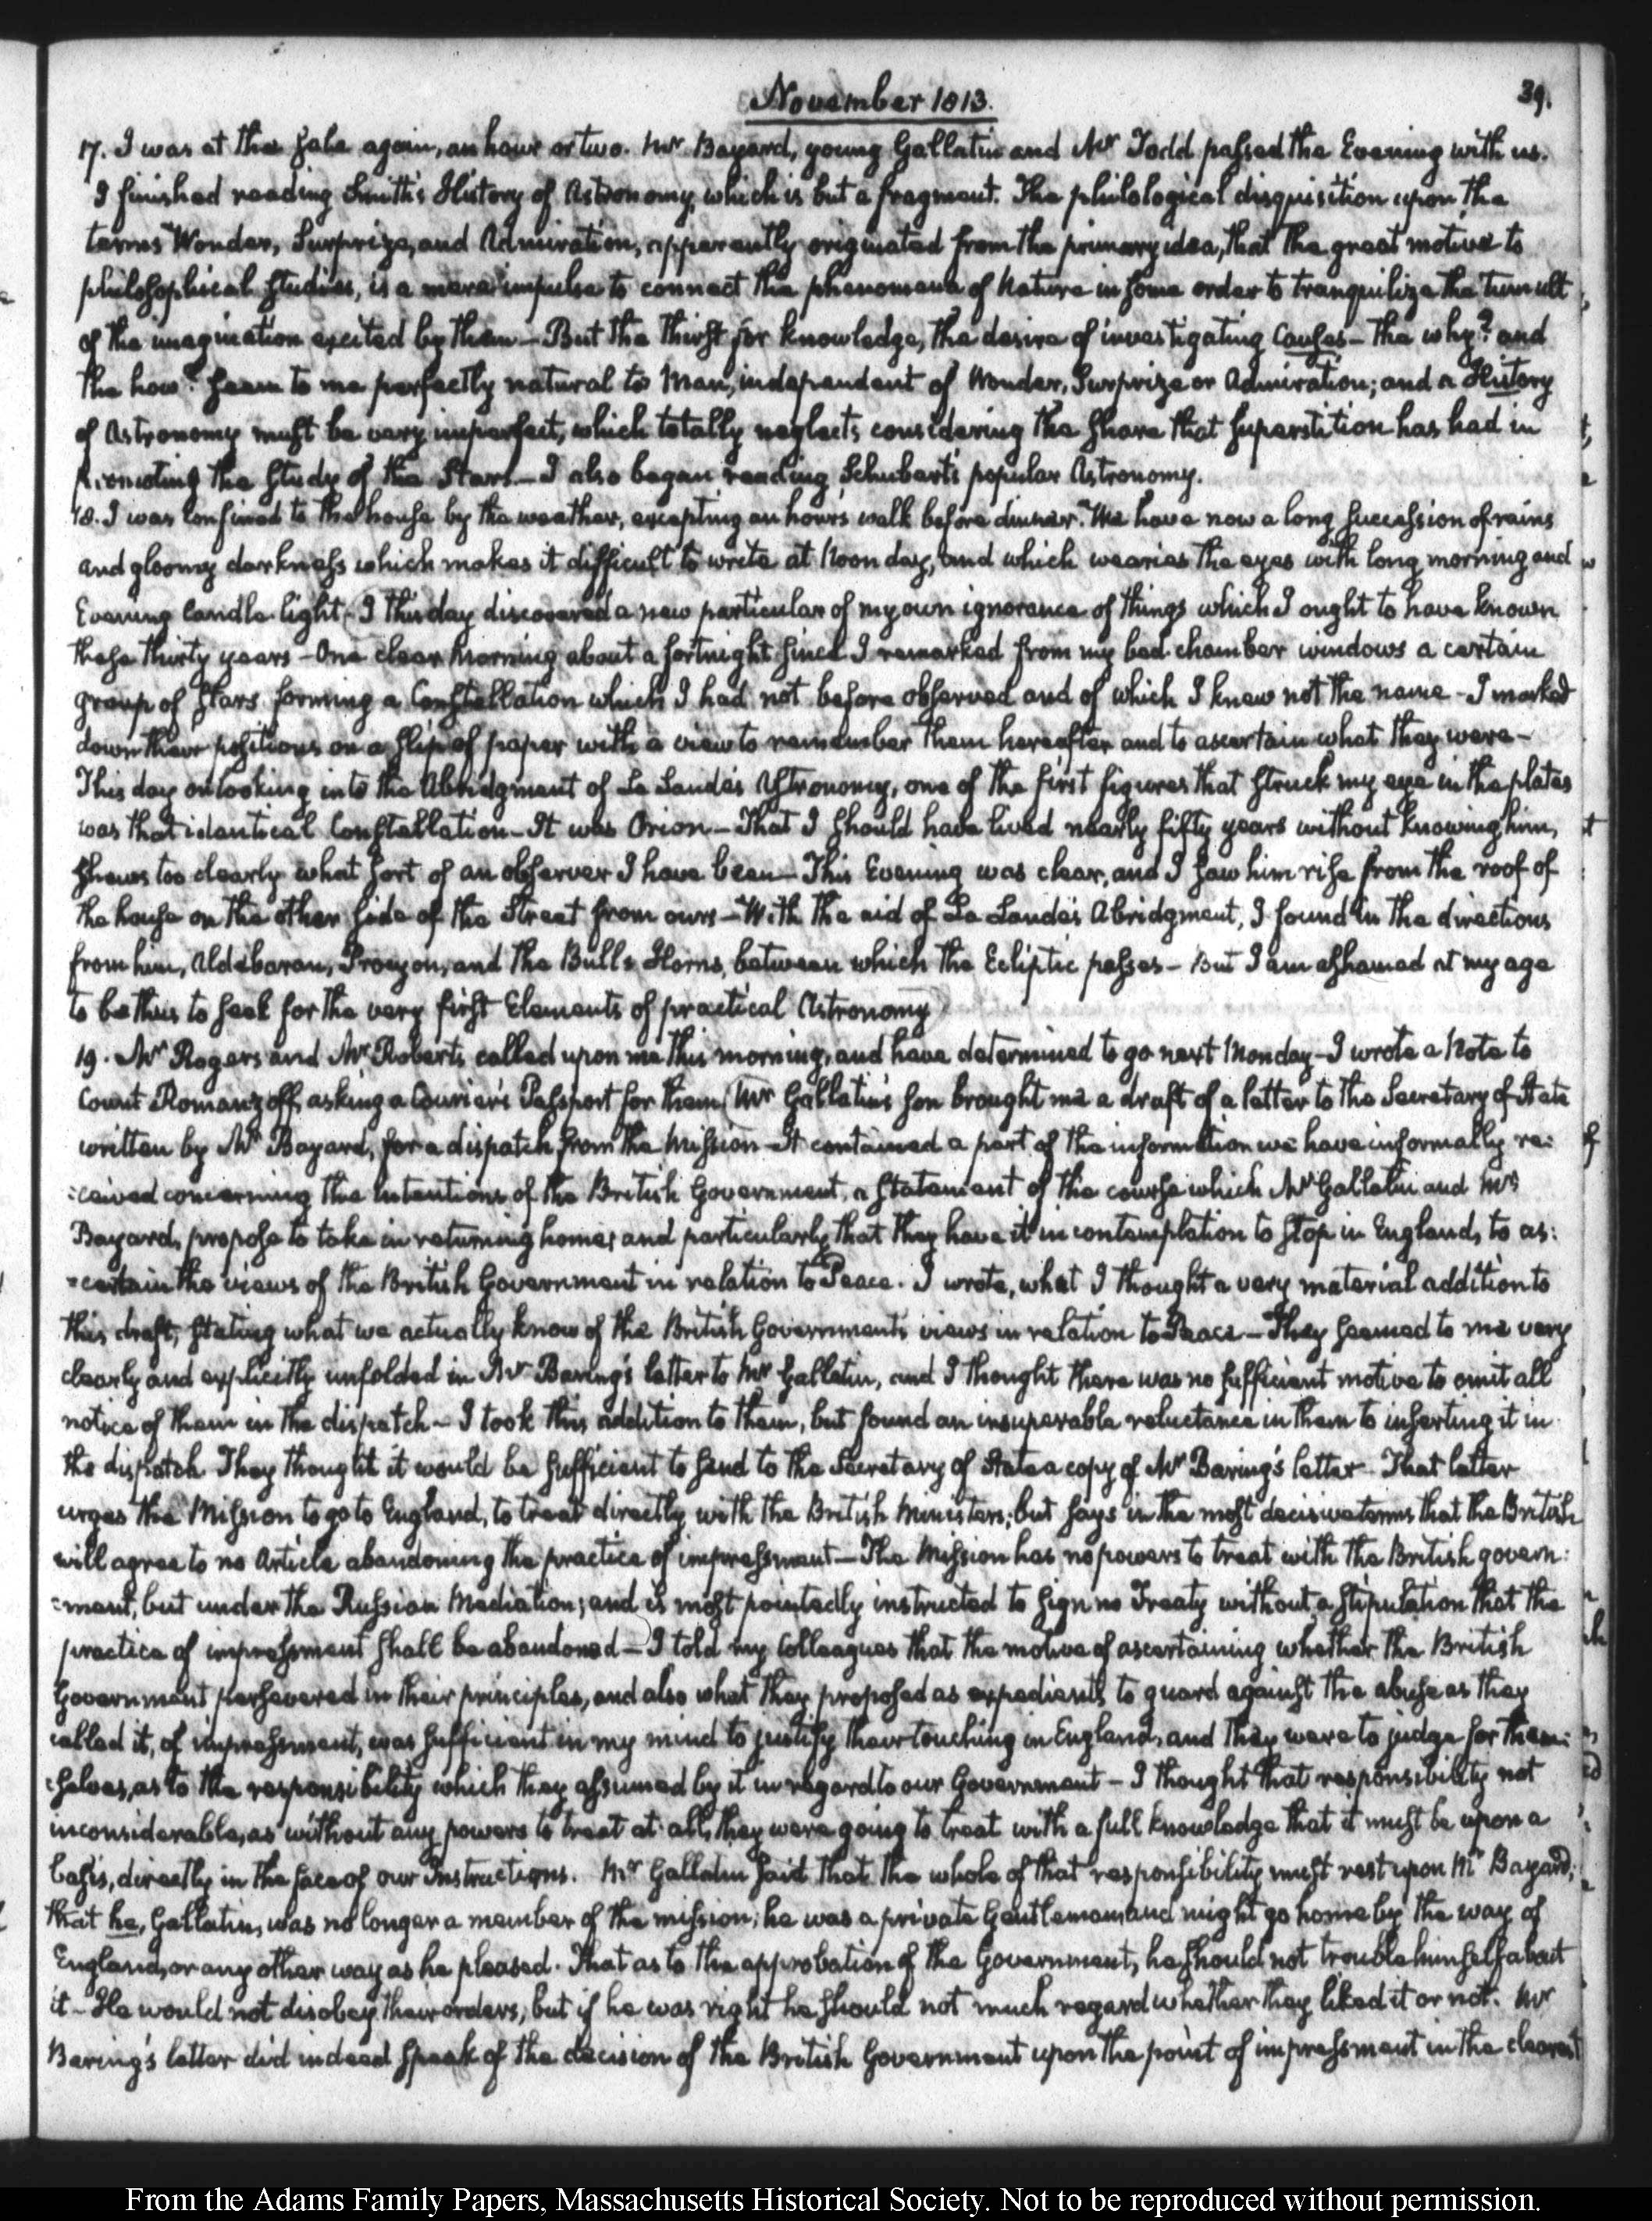 November 1813.
39.
17. I was at the sale again, an hour or two. Mr. Bayard, young Gallatin and Mr Todd passed the Evening with us.
I finished reading Smith's History of Astronomy, which is but a fragment. The philological disquisition upon the
terms Wonder, Surprize, and Admiration, apparently originated from the primary idea, that the great motive to
philosophical studies, is a mere impulse to connect the phenomena of Nature in some order to tranquilize the tumult
of the imagination excited by them — But the thirst for knowledge, the desire of investigating Causes — the why? and
the how? seem to me perfectly natural to Man, independent of Wonder, Surprize or Admiration; and a History
of Astronomy must be very imperfect, which totally neglects considering the share that superstition has had in
promoting the study of the Stars — I also began reading Schubert's popular Astronomy.
18. I was confined to the house by the weather, excepting an hours walk before dinner. We have now a long succession of rains
and gloomy darkness which makes it difficult to write at Noon day, and which wearies the eyes with long morning and
Evening candle-light — I this day discovered a new particular of my own ignorance of things which I ought to have known
these thirty years — One clear Morning about a fortnight since I remarked from my bed-chamber windows a certain
group of Stars forming a Constellation which I had not before observed and of which I knew not the name — I marked
down their positions on a slip of paper with a view to remember them hereafter and to ascertain what they were —
This day on looking into the Abridgment of La Lande's Astronomy, one of the first figures that struck my eye in the plates
was that identical Constellation — It was Orion — That I should have lived nearly fifty years without knowing him,
shews too clearly what sort of an observer I have been — This Evening was clear, and I saw him rise from the roof of
the house on the other side of the Street from ours — With the aid of La Lande's Abridgment, I found in the directions
from him, Aldebaran, Procyon, and the Bull's Horns, between which the Ecliptic passes — But I am ashamed at my age
to be thus to seek for the very first Elements of practical Astronomy
19. Mr Rogers and Mr Roberts called upon me this morning, and have determined to go next Monday — I wrote a Note to
Count Romanzoff, asking a Courier's Passport for them. Mr Gallatin's son brought me a draft of a letter to the Secretary of State
written by Mr Bayard, for a dispatch from the Mission — It contained a part of the information we have informally re:
:ceived concerning the intentions of the British Government, a statement of the course which Mr Gallatin and Mr
Bayard, propose to take in returning home; and particularly that they have it in contemplation to stop in England, to as:
:certain the views of the British Government in relation to Peace. I wrote, what I thought a very material addition to
this draft, stating what we actually know of the British Government's views in relation to Peace — They seemed to me very
clearly and explicitly unfolded in Mr Baring's letter to Mr Gallatin, and I thought there was no sufficient motive to omit all
notice of them in the dispatch — I took this addition to them, but found an insuperable reluctance in them to inserting it in
the dispatch. They thought it would be sufficient to send to the Secretary of State a copy of Mr Baring's letter — That letter
urges the Mission to go to England, to treat directly with the British Ministers; but says in the most decisive terms that the British
will agree to no Article abandoning the practice of impressment — The Mission has no powers to treat with the British govern:
:ment, but under the Russian Mediation; and is most pointedly instructed to sign no Treaty without a stipulation that the
practice of impressment shall be abandoned — I told my Colleagues that the motive of ascertaining whether the British
Government persevered in their principles, and also what they proposed as expedients to guard against the abuse as they
called it, of impressment, was sufficient in my mind to justify their touching in England, and they were to judge for them:
:selves, as to the responsibility which they assumed by it in regard to our Government — I thought that responsibility not
inconsiderable, as without any powers to treat at all, they were going to treat with a full knowledge that it must be upon a
basis, directly in the face of our Instructions. Mr Gallatin said that the whole of that responsibility must rest upon Mr Bayard;
that he, Gallatin, was no longer a member of the mission; he was a private Gentleman, and might go home by the way of
England, or any other way as he pleased. That as to the approbation of the Government, he should not trouble himself about
it — He would not disobey their orders, but if he was right he should not much regard whether they liked it or not. Mr
Baring's letter did indeed speak of the decision of the British Government upon the point of impressment in the clearest
From the Adams Family Papers, Massachusetts Historical Society. Not to be reproduced without permission.